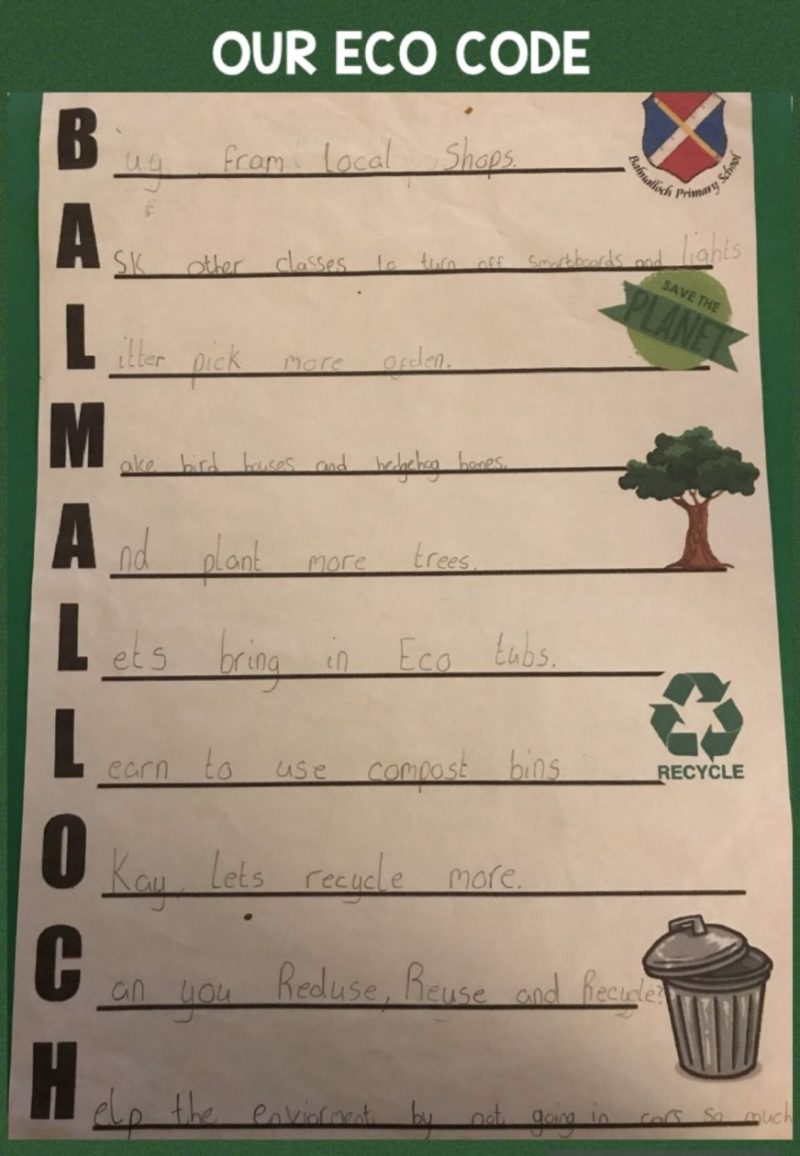 OUR ECO CODE
Buy from local Shops.
Balmalloch Primary School
ASK other classes to turn off smartboards and lights
SAVE THE
PLANET
Litter pick more ofden.
Make bird houses and hedgehog homes.
And plant more trees.
Lets bring in Eco tubs.
Learn to use compost bins
RECYCLE
OKay, Lets recycle more.
Can you Reduse, Reuse and Recycle?
Help the enviorment by not going in cars so much